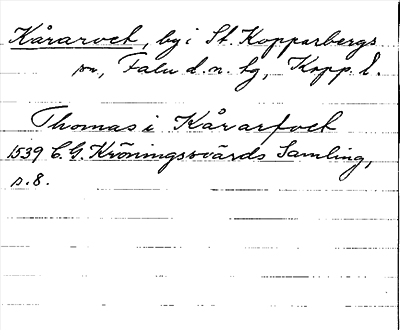 Kårarvet, by i St. Kopparbergs
sn, Falu d.n. tg, Kopp. l.
Thomas i Kårarfvet
1539 C.G. Kröningssvärds Samling,
s. 8.